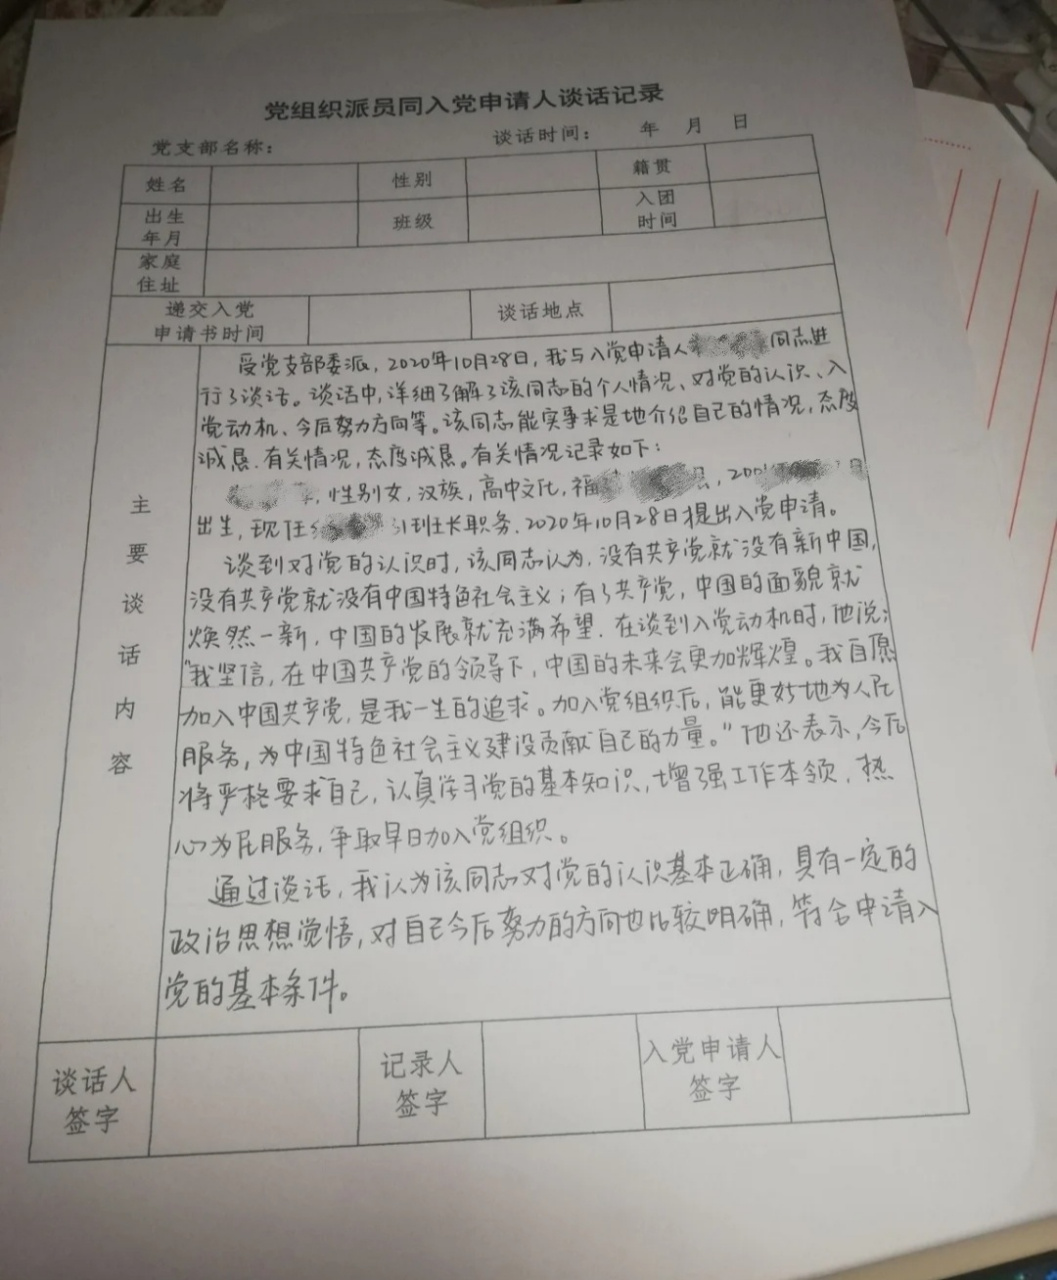 党组织派员同入党申请人谈话记录
党支部名称： 谈话时间： 年 月 日
姓名 性别 籍贯
出生年月 班级 入团时间
家庭住址
递交入党申请书时间 谈话地点
主要谈话内容
受党支部委派，2020年10月28日，我与入党申请人 同志进
行了谈话。谈话中，详细了解了该同志的个人情况、对党的认识、入
党动机、今后努力方向等。该同志能实事求是地介绍自己的情况，态度
诚恳、有关情况，态度诚恳。有关情况记录如下：
，性别女，汉族，高中文化，福 县，200 日
出生，现任 班长职务。2020年10月28日提出入党申请。
谈到对党的认识时，该同志认为，没有共产党就没有新中国，
没有共产党就没有中国特色社会主义；有了共产党，中国的面貌就
焕然一新，中国的发展就充满希望．在谈到入党动机时，他说：
“我坚信，在中国共产党的领导下，中国的未来会更加辉煌。我自愿
加入中国共产党，是我一生的追求。加入党组织后，能更好地为人民
服务，为中国特色社会主义建设贡献自己的力量。”他还表示，今后
将严格要求自己，认真学习党的基本知识，增强工作本领，热
心为民服务，争取早日加入党组织。
通过谈话，我认为该同志对党的认识基本正确，具有一定的
政治思想觉悟，对自己今后努力的方向也比较明确，符合申请入
党的基本条件。
谈话人签字 记录人签字 入党申请人签字